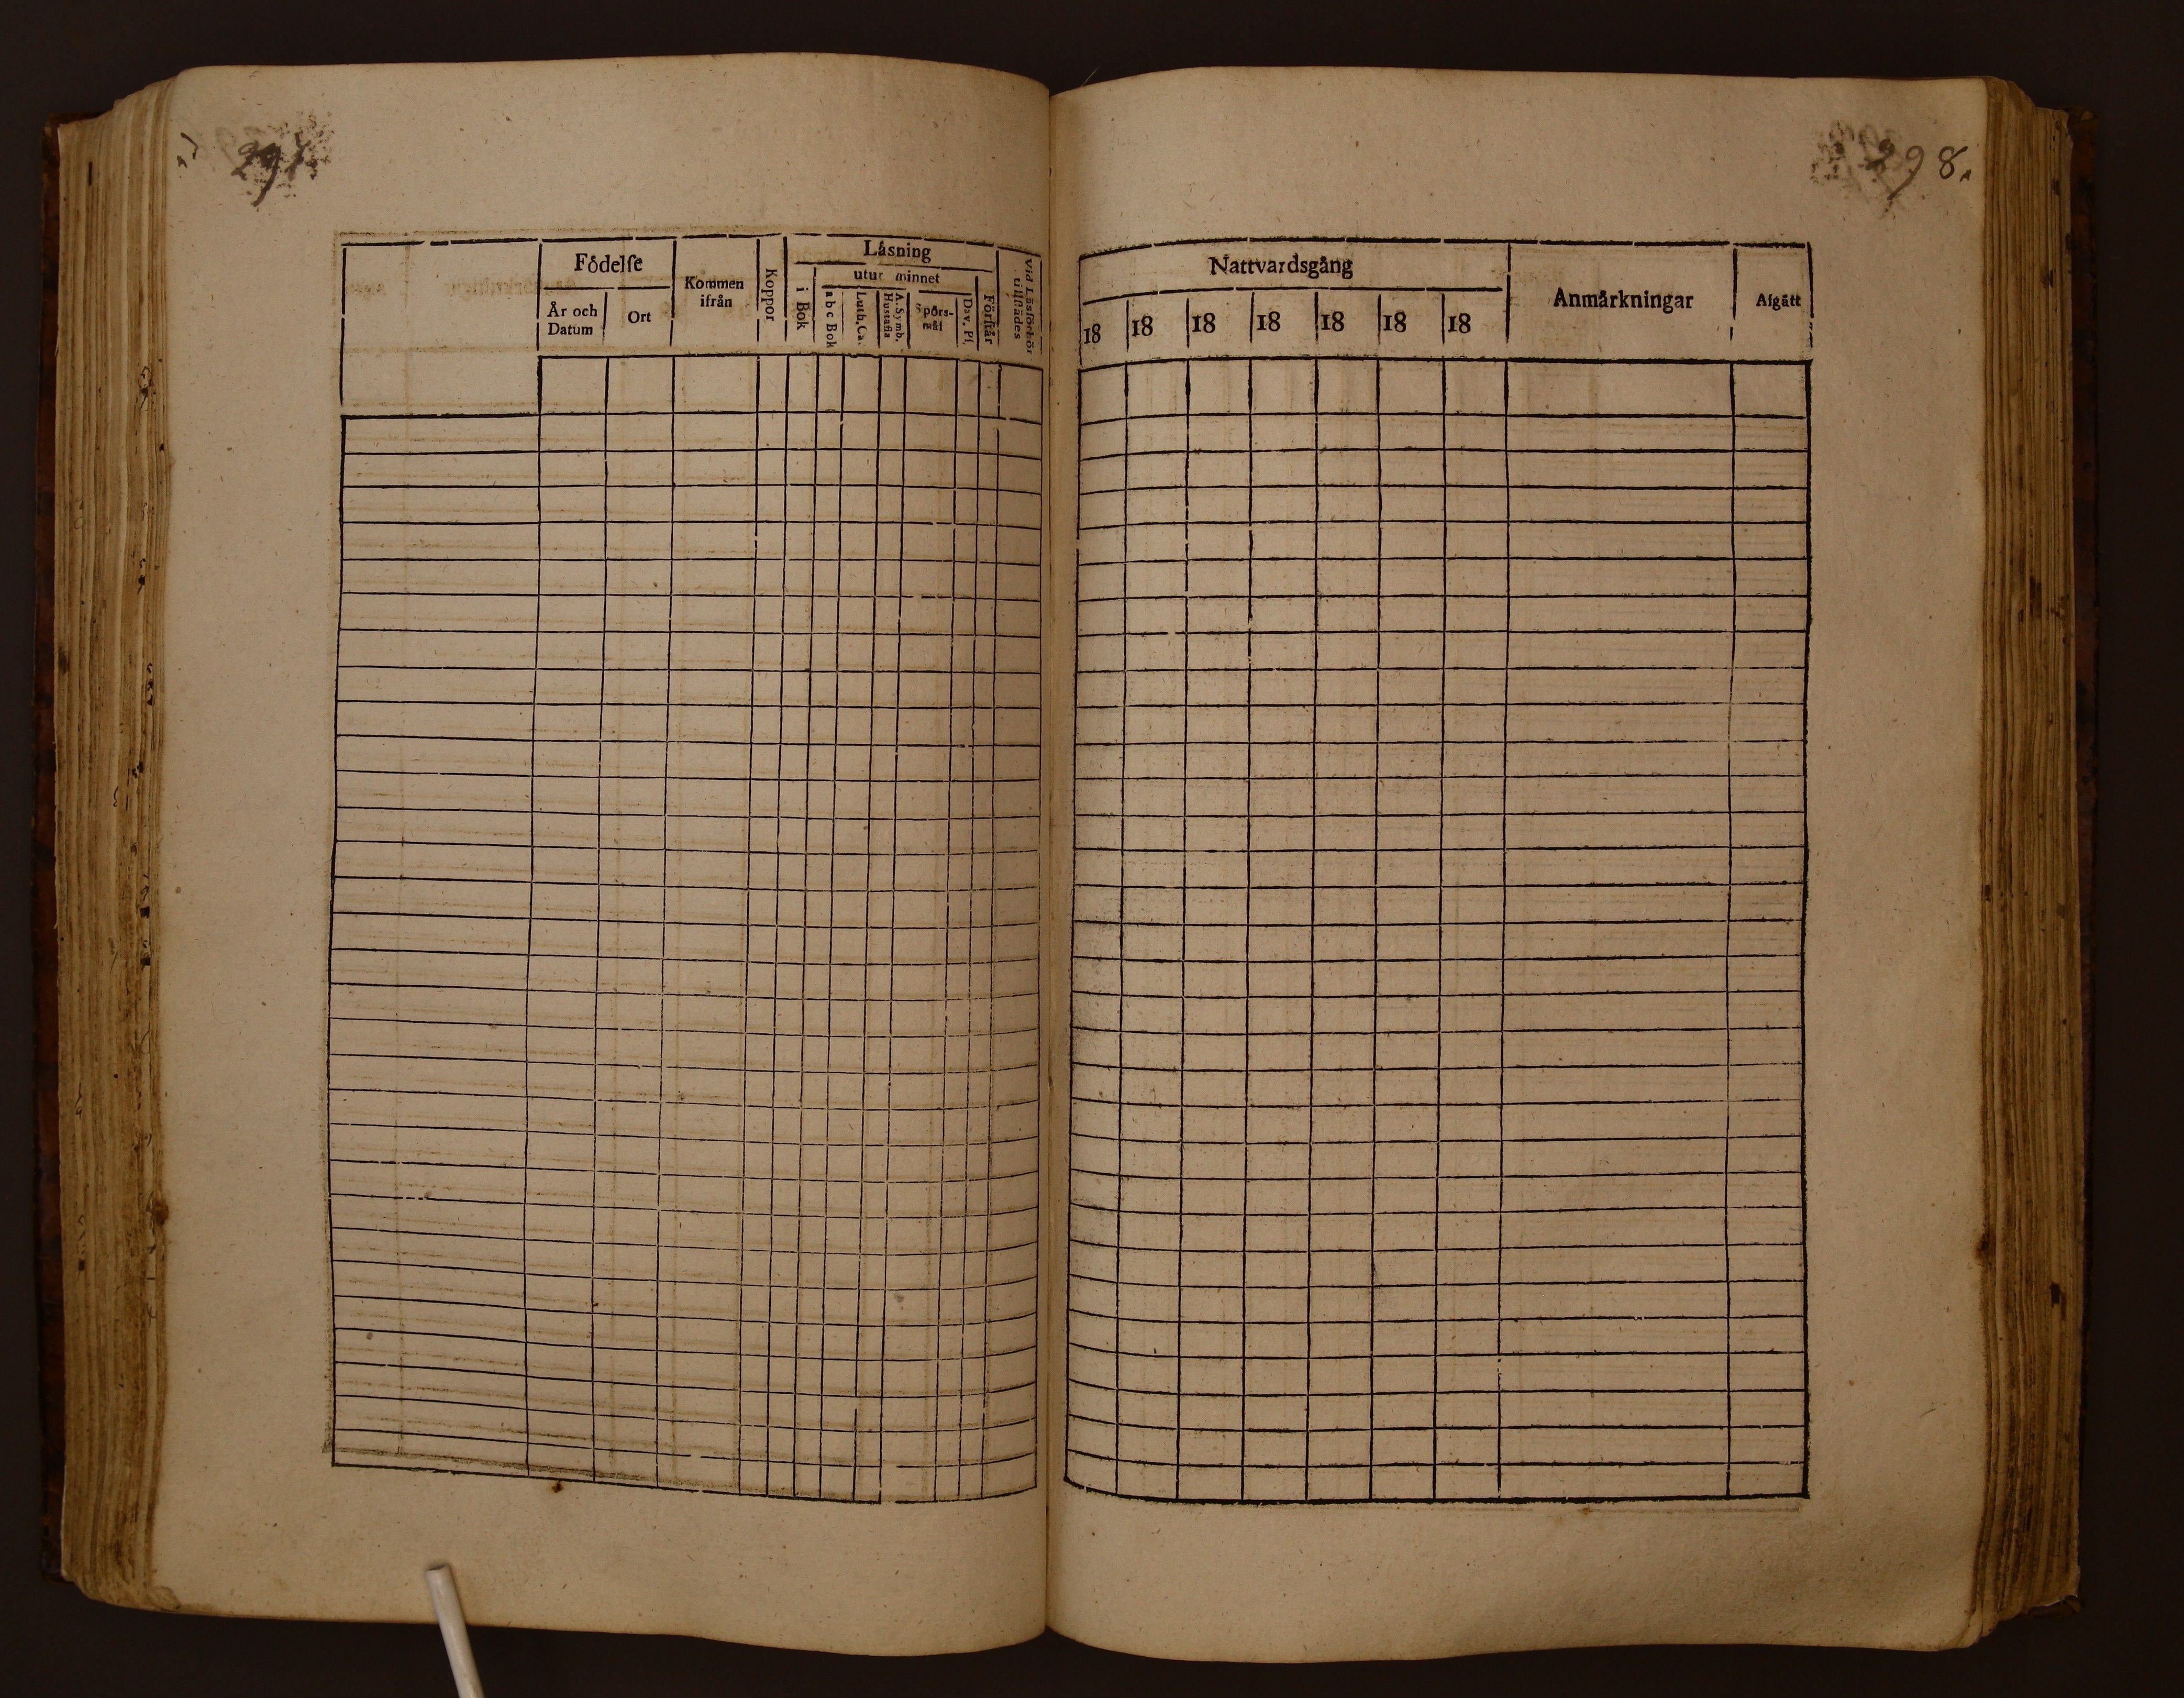 297.
Födelſe
År och Datum
Ort
Kommen ifrån
Koppor
Låsning
i Bok
utur minnet
a b c Bok
Luth. Ca.
A. Symb. Hustafla
Spörs-mål
Dav. Pſ.
Förſtår
Vid Läsförhör tillſtädes
298.
Nattvardsgång
18 18 18 18 18 18 18
Anmårkningar
Afgått